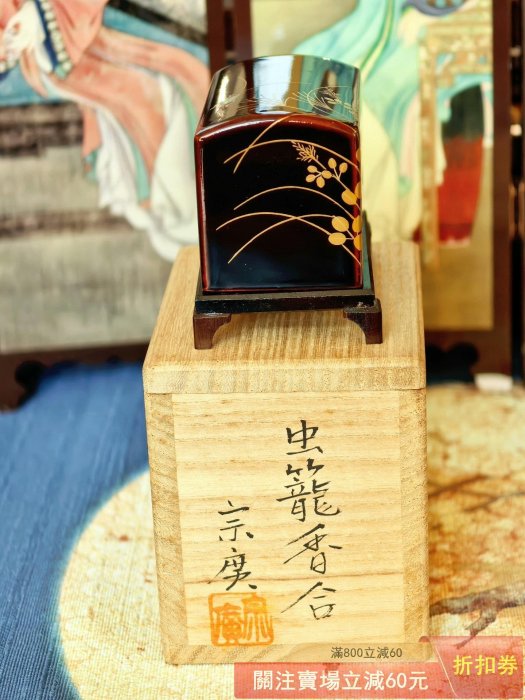 虫籠香合
宗廣
滿800立減60
關注賣場立減60元
折扣券